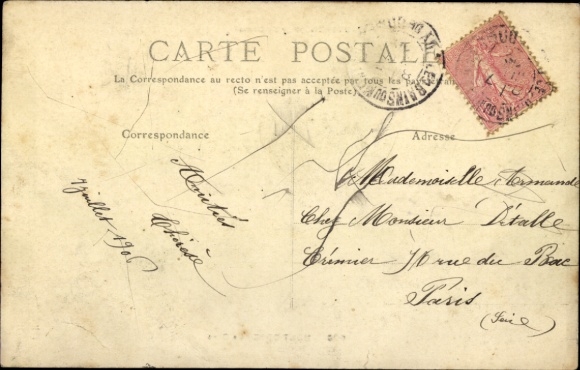 CARTE POSTALE
La Correspondance au recto n'est pas acceptée par tous les pays
(Se renseigner à la Poste)
Correspondance
Adresse
Amitiés
Thérèse
7 juillet 1906
Mademoiselle Armande
Chez Monsieur Détalle
Crémier 76 rue du Bac
Paris
(Seine)